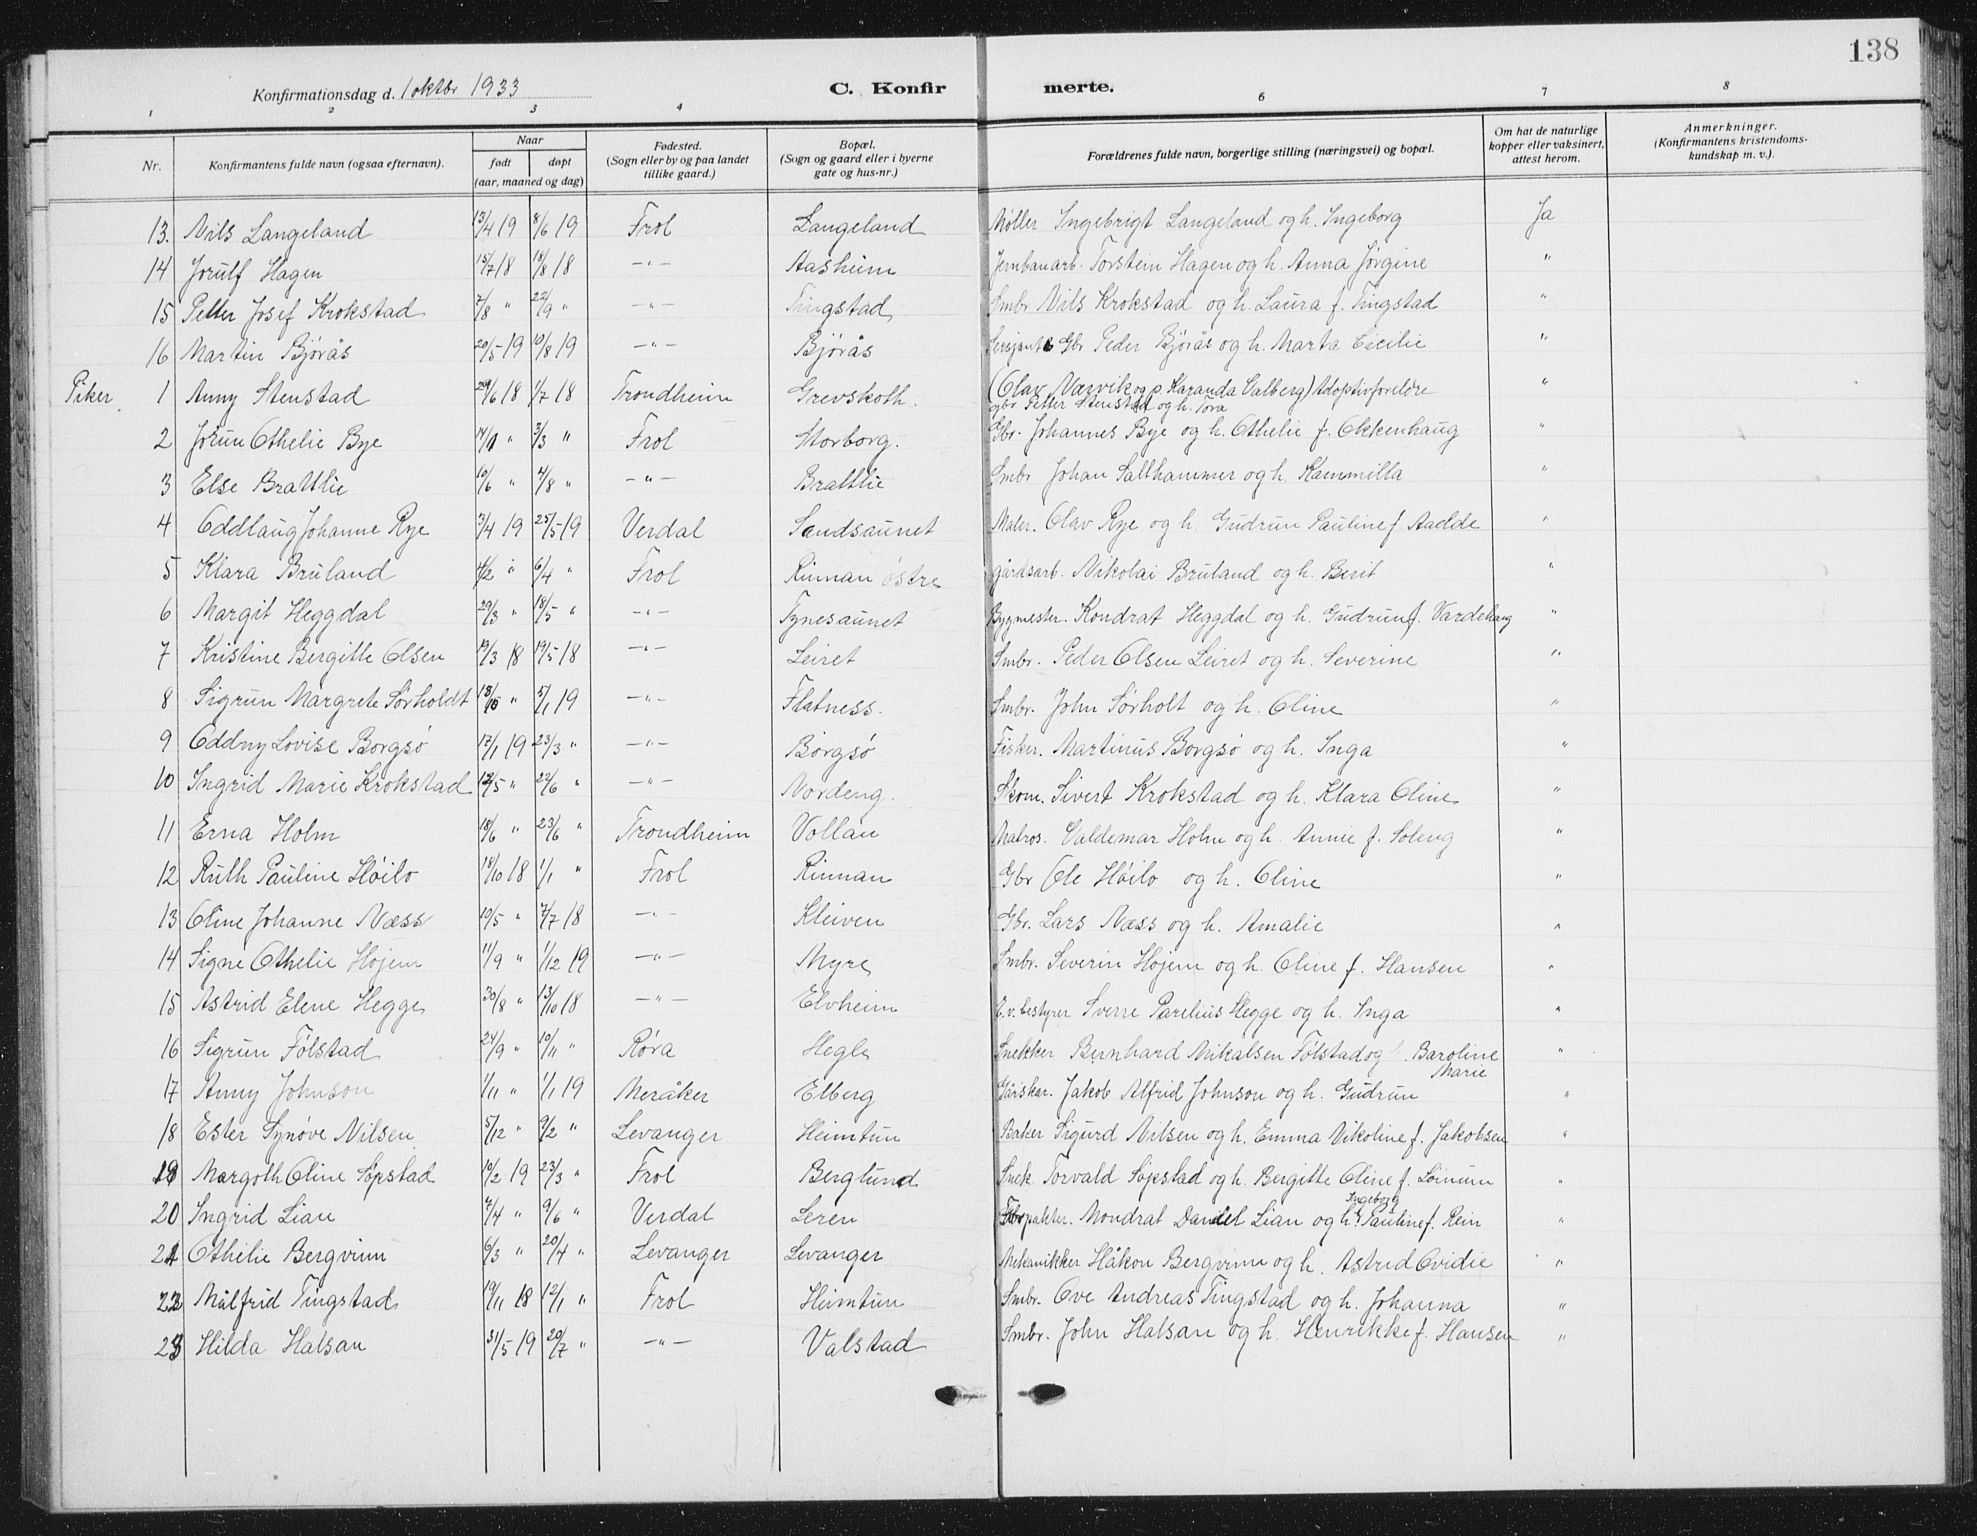 138
Konfirmationsdag d. 1 oktbr 1933 C. Konfirmerte.
1 2 3 4 6 7 8
Nr. Konfirmantens fulde navn (ogsaa efternavn). Naar født døpt (aar, maaned og dag) Fødested. (Sogn eller by og paa landet tillike gaard.) Bopæl. (Sogn og gaard eller i byerne gate og hus-nr.) Forældrenes fulde navn, borgerlige stilling (næringsvei) og bopæl. Om hat de naturlige kopper eller vaksinert, attest herom. Anmerkninger. (Konfirmantens kristendoms-kundskap m. v.).
13. Nils Langeland 13/4 19 8/6 19 Frol Langeland Møller Ingebrigt Langeland og h. Ingeborg Ja
14 Jørulf Hagen 15/7 18 18/8 18 -"- Aasheim Jernbanarb. Torstein Hagen og h. Anna Jørgine "
15 Petter Josef Krokstad 7/8 " 22/9 " -"- Tingstad Smbr Nils Krokstad og h. Laura f. Tingstad "
16 Martin Bjørås 20/5 19 10/8 19 -"- Bjørås Sersjant Gbr Peder Bjørås og h. Marta Cecilie "
Piker 1 Anny Stenstad 29/6 18 1/7 18 Trondheim Grevskoth. (Olav Værvik og p. Karanda Valberg) Adoptivforeldre "
gbr Petter Stenstad og h. Tora
2 Jorun Othelie Bye 3/3 " Frol Storborg. Gbr. Johannes Bye og h. Othelie f. Okkenhaug "
3 Else Brattlie 10/6 " 4/8 " -"- Brattlie Smbr Johan Salthammer og h. Kammilla "
4 Oddlaug Johanne Rye 3/4 19 25/5 19 Verdal Sandsaunet Maler. Olav Rye og h. Gudrun Pauline f. Aadde "
5 Klara Bruland 4/2 " 6/4 " Frol Rinnan østre gårdsarb. Nikolai Bruland og h. Berit "
6 Margit Heggdal 29/3 " 18/5 " -"- Tynesaunet Bygmester. Kondrat Heggdal og h. Gudrun f. Vardehaug "
7 Kristine Bergitte Olsen 19/3 18 19/5 18 -"- Leiret Smbr. Peder Olsen Leiret og h. Severine "
8 Sigrun Margrete Sørholdt 13/10 " 5/1 19 -"- Flatness. Smbr. John Sørholt og h. Oline "
9 Oddny Lovise Borgsø 17/1 19 23/3 " -"- Borgsø Fisker. Martinus Borgsø og h. Inga "
10 Ingrid Marie Krokstad 12/5 " 22/6 " -"- Nordeng. Skom. Sivert Krokstad og h. Klara Oline "
11 Erna Holm 18/6 " 23/6 " Trondheim Vollan Matros. Valdemar Holm og h. Annie f. Soleng "
12 Ruth Pauline Høilo 18/10 18 1/1 " Frol Rinnan Gbr Ole Høilo og h. Oline "
13 Oline Johanne Næss 10/5 " 7/7 18 -"- Kleiven Gbr. Lars Næss og h. Amalie "
14 Signe Othelie Højem 11/9 " 1/12 19 -"- Myre Smbr. Severin Højem og h. Oline f. Hansen "
15 Astrid Elene Hegge 30/8 " 13/10 18 -"- Elvheim E.v. bestyrer Sverre Parelius Hegge og h. Inga "
16 Sigrun Følstad 24/9 " 10/11 " Røra Hegle Snekker Bernhard Mikalsen Følstad og h. Baroline Marie "
17 Anny Johnson 1/11 " 1/1 19 Meråker Elberg Gårskar. Jakob Alfrid Johnson og h. Gudrun "
18 Ester Synøve Nilsen 5/12 " 9/2 " Levanger Heimtun Baker Sigurd Nilsen og h. Emma Nikoline f. Jakobsen "
19 Margoth Oline Søpstad 10/2 19 23/3 " Frol Berglund Snek. Torvald Søpstad og h. Bergitte Oline f. Loinum "
20 Ingrid Lian 7/4 " 9/6 " Verdal Leren Mondrat Daniel Lian og h. Ingeborg Pauline f. Rein "
21 Othelie Bergvinn 6/3 " 20/4 " Levanger Levanger Mekanikker Håkon Bergvinn og h. Astrid Ovidie "
22 Målfrid Tingstad 19/11 18 12/1 " Frol Heimtun Smbr. Ove Andreas Tingstad og h. Johanna "
23 Hilda Halsan 31/5 19 20/7 " -"- Valstad Smbr. John Halsan og h. Henrikke f. Hansen "